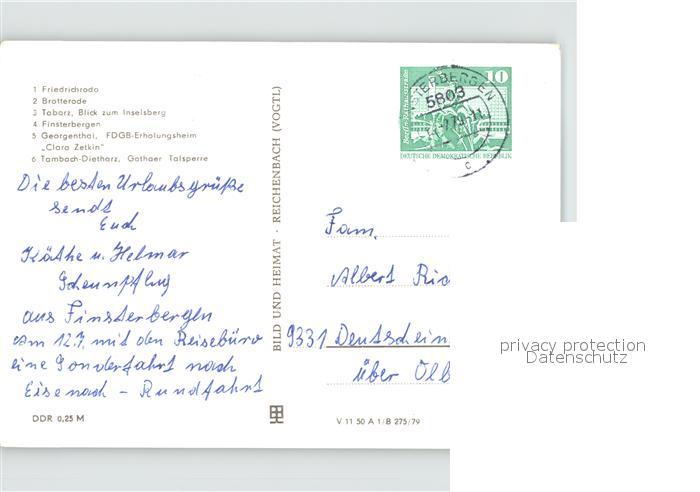 1 Friedrichroda
2 Brotterode
3 Tabarz, Blick zum Inselsberg
4 Finsterbergen
5 Georgenthal, FDGB-Erholungsheim
„Clara Zetkin"
6 Tambach-Dietharz, Gothaer Talsperre
Die besten Urlaubsgrüße
sendt
Euch
Käthe u. Helmar
Scheunpflug
aus Finsterbergen
am 12.7. mit den Reisebüro
eine Sonderfahrt nach
Eisenach – Rundfahrt
DDR 0,25 M
BILD UND HEIMAT · REICHENBACH (VOGTL)
10
DEUTSCHE DEMOKRATISCHE REPUBLIK
5803
c
Fam.
Albert Ric
9331 Deutschein
über Olb
V 11 50 A 1/B 275/79
privacy protection
Datenschutz